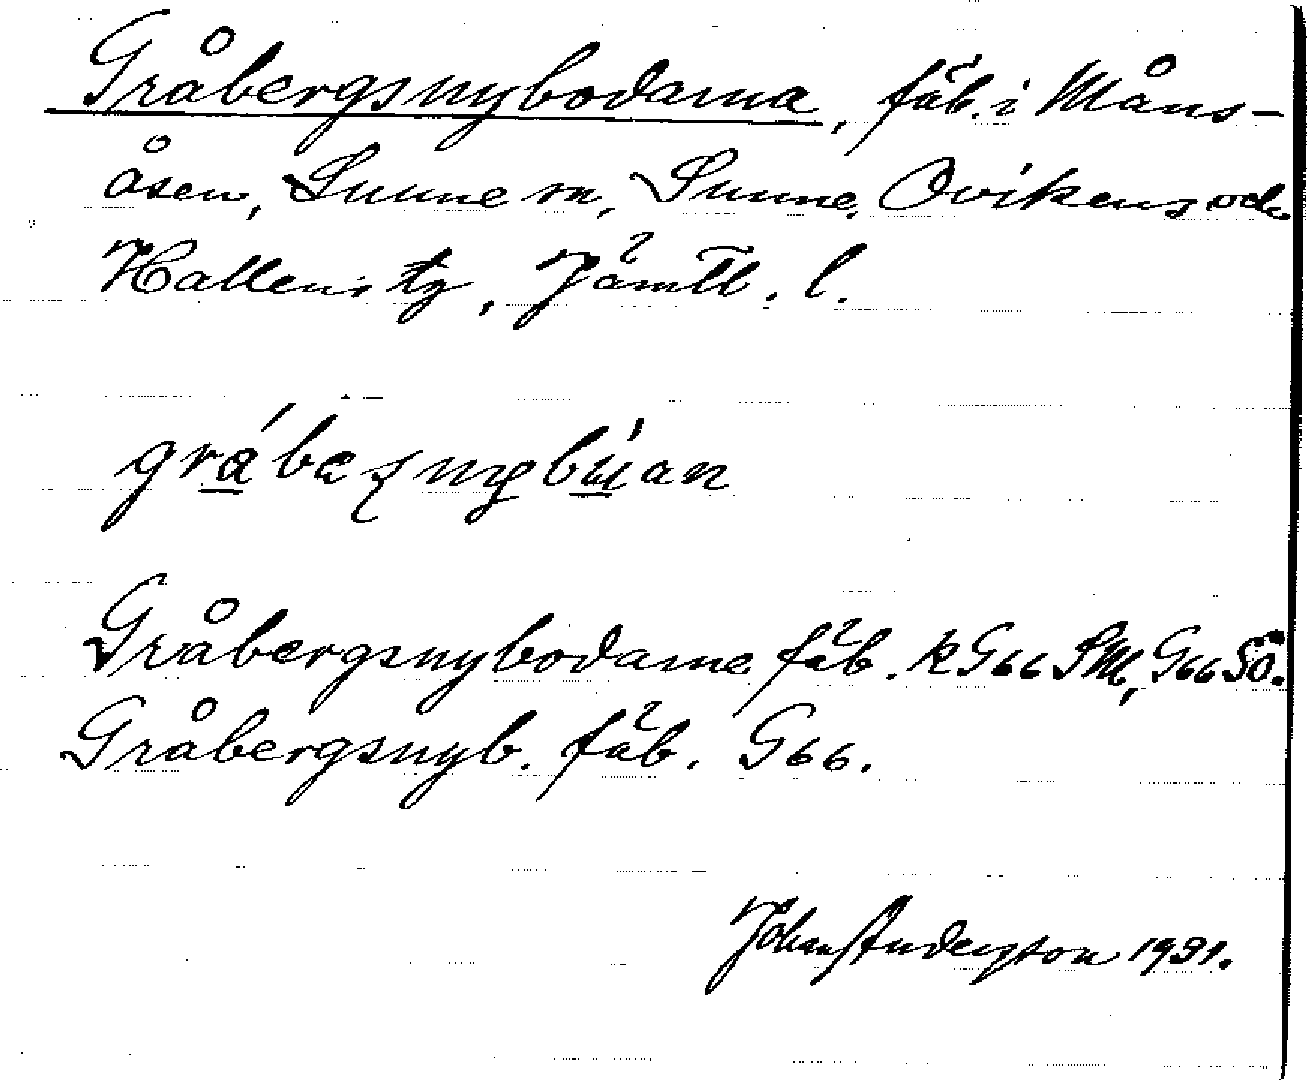 Gråbergsnybodarna, fäb. i Måns-
åsen, Sunne sn, Sunne, Ovikens och
Hallens tg, Jämtl. l.
Gråbergsnybodarne fäb. k G66 SM, G66 Sö.
Gråbergsnyb. fäb. G66.
Johan Anderson 1931.